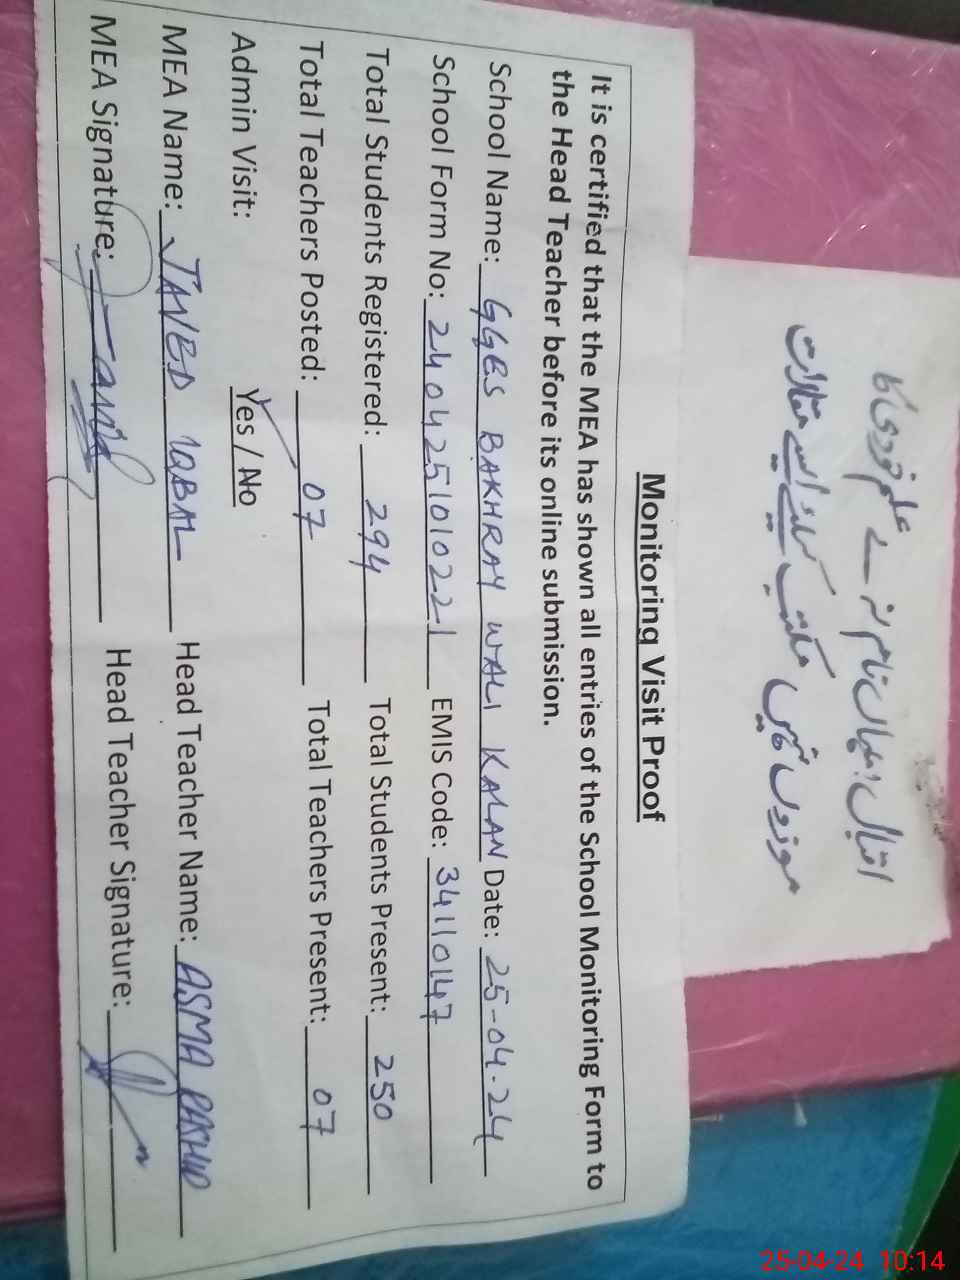 اقبال! یہاں نام نہ لے علم خودی کا
موزوں نہیں مکتب کیلئے ایسے مقالات
Monitoring Visit Proof
It is certified that the MEA has shown all entries of the School Monitoring Form to
the Head Teacher before its online submission.
School Name: GGES BAKHRAY WALI KALAN Date: 25-04-24
School Form No: 2404251010221 EMIS Code: 34110147
Total Students Registered: 294 Total Students Present: 250
Total Teachers Posted: 07 Total Teachers Present: 07
Admin Visit: Yes / No
MEA Name: JAVED IQBAL Head Teacher Name: ASMA RASHID
MEA Signature: Head Teacher Signature:
25-04-24 10:14